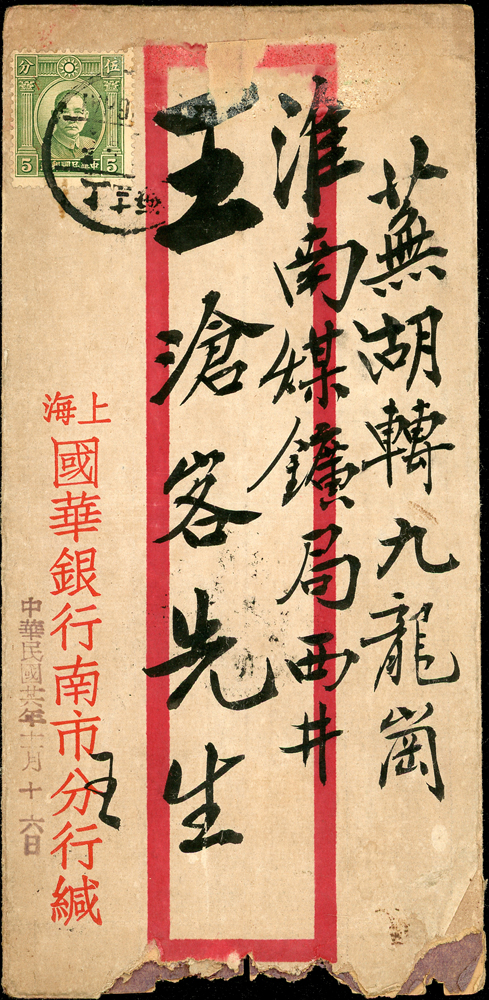 蕪湖轉九龍崗
淮南煤鑛局西井
王滄客先生
上海
國華銀行南市分行緘
王
中華民國廿年十一月十六日
分伍
5 5